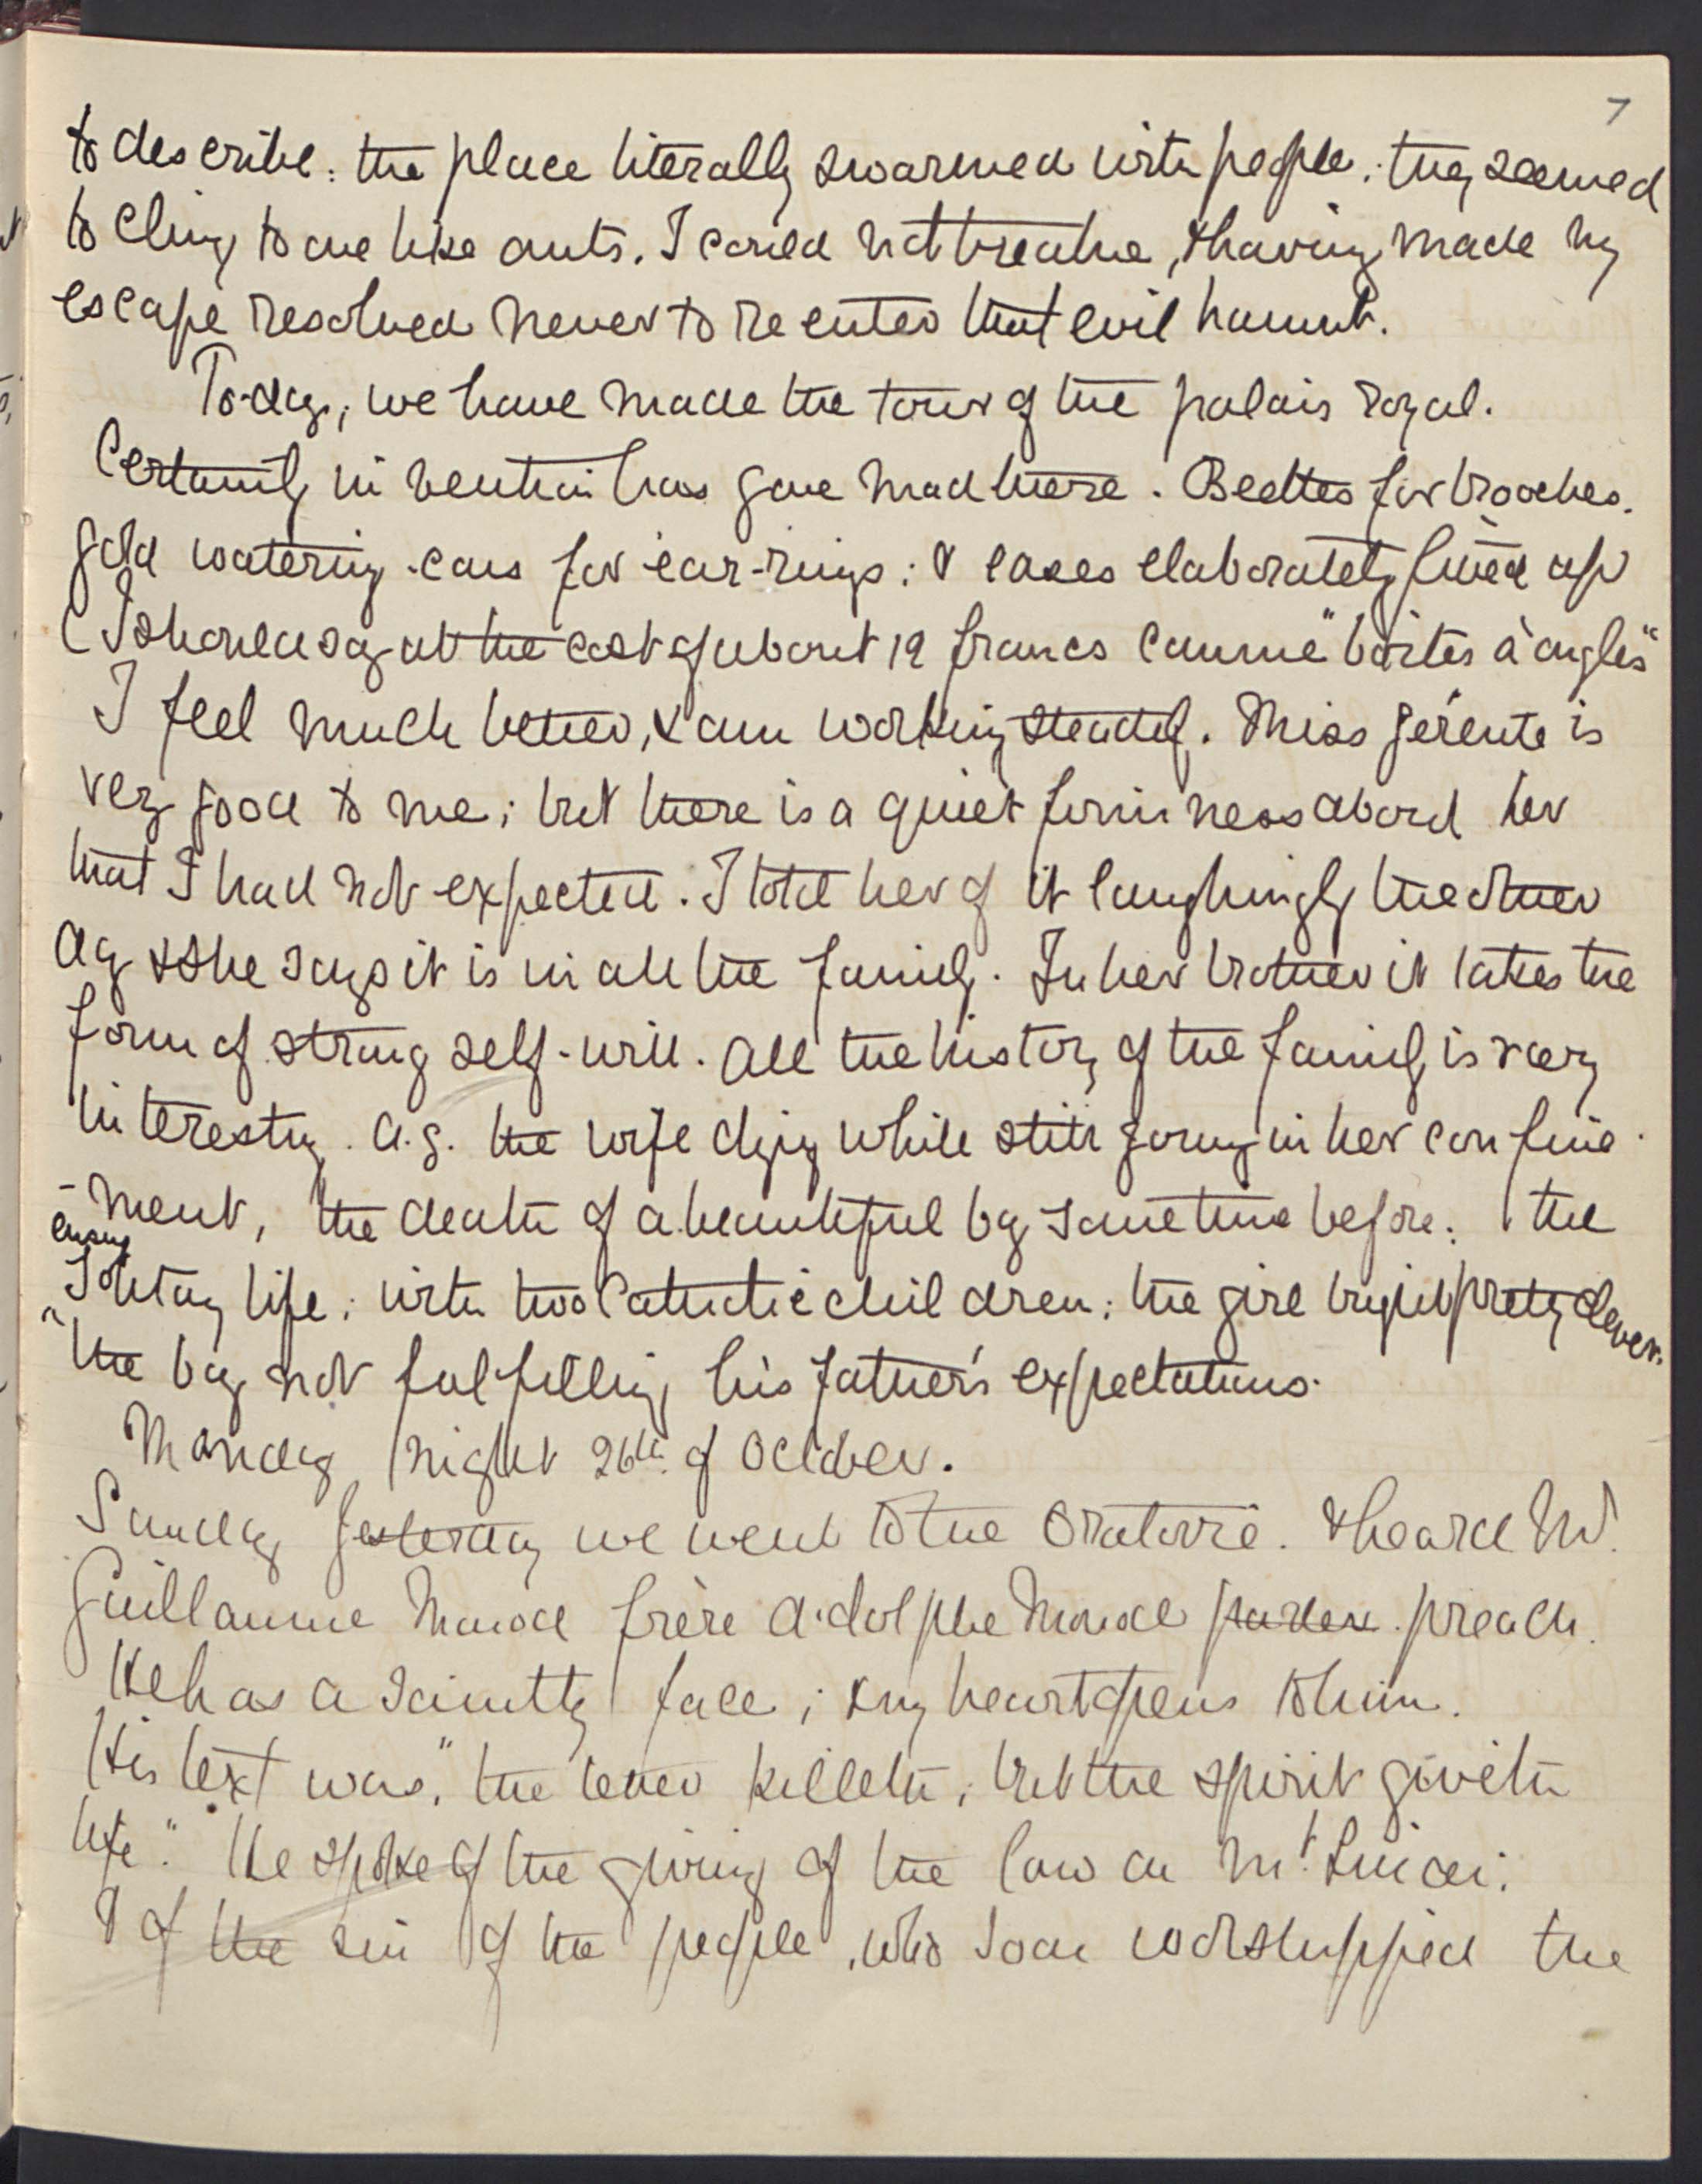 7
to describe: the place literally swarmed with people: they seemed
to cling to one like ants. I could not breathe, & having made my
escape resolved never to re enter that evil haunt.
To-day, we have made the tour of the palais royal.
Certainly invention has gone mad there. Beetles for brooches.
gold watering-cans for ear-rings: & cases elaborately fitted up
(I should say at the cost of about 12 francs comme "boîtes à ongles"
I feel much better, & am working steadily. Miss Gérente is
very good to me; but there is a quiet firmness about her
that I had not expected. I told her of it laughingly the other
day & she says it is in all the family. In her brother it takes the
form of strong self-will. All the history of the family is very
interesting. a.g. the wife dying while still young in her confine
-ment, the death of a beautiful boy sometime before: the
ensuing
solitary life: with two Catholic children: the girl bright pretty clever.
the boy not fulfilling his father's expectations.
Monday night 26th of October.
Sunday yesterday we went to the Oratoire. & heard M.
Guillaume Monod frère Adolphe Monod parler. preach.
He has a saintly face; & my heart opens to him.
His text was, "the letter killeth, but the spirit giveth
life." He spoke of the giving of the law on Mt. Sinai:
& of the sin of the people, who soon worshipped the